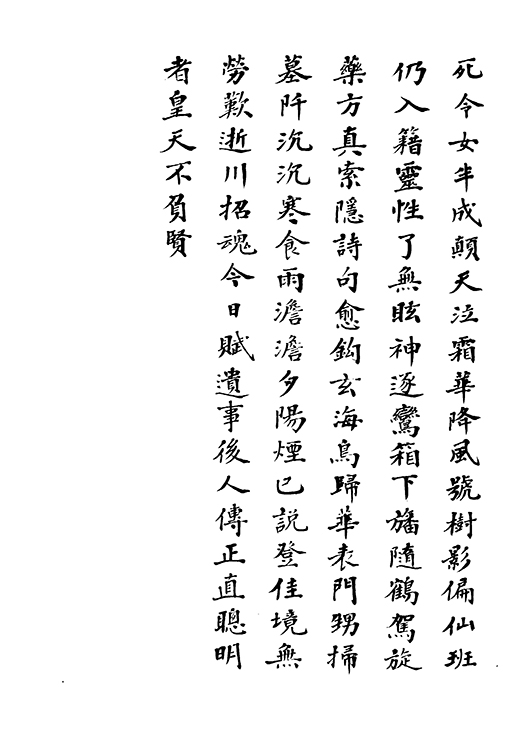 死令女半成顛天泣霜華降風號樹影偏仙班
仍入籍靈性了無眩神逐鸞箱下旛隨鶴駕旋
藥方真索隱詩句愈鈎玄海鳥歸華表門甥掃
墓阡沉沉寒食雨澹澹夕陽煙已說登佳境無
勞歎逝川招魂今日賦遺事後人傳正直聰明
者皇天不負賢